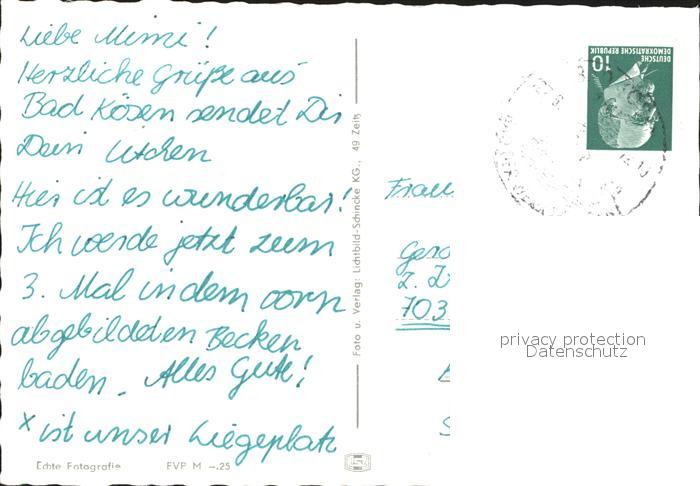 Liebe Mimi!
Herzliche Grüße aus
Bad Kösen sendet Dir
Dein Utchen
Hier ist es wunderbar!
Ich werde jetzt zum
3. Mal in dem vorn
abgebildeten Becken
baden. Alles Gute!
x ist unser Liegeplatz
Echte Fotografie EVP M -.25
Foto u. Verlag: Lichtbild-Schincke KG., 49 Zeitz
DEUTSCHE
DEMOKRATISCHE REPUBLIK
10
Frau
703
privacy protection
Datenschutz